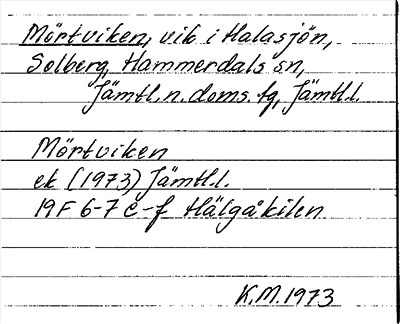 Mörtviken, vik i Halasjön,
Solberg, Hammerdals sn,
Jämtl. n. doms. tg, Jämtl. l.
Mörtviken
ek (1973) Jämtl. l.
19F 6-7 e-f Hälgåkilen
K.M. 1973